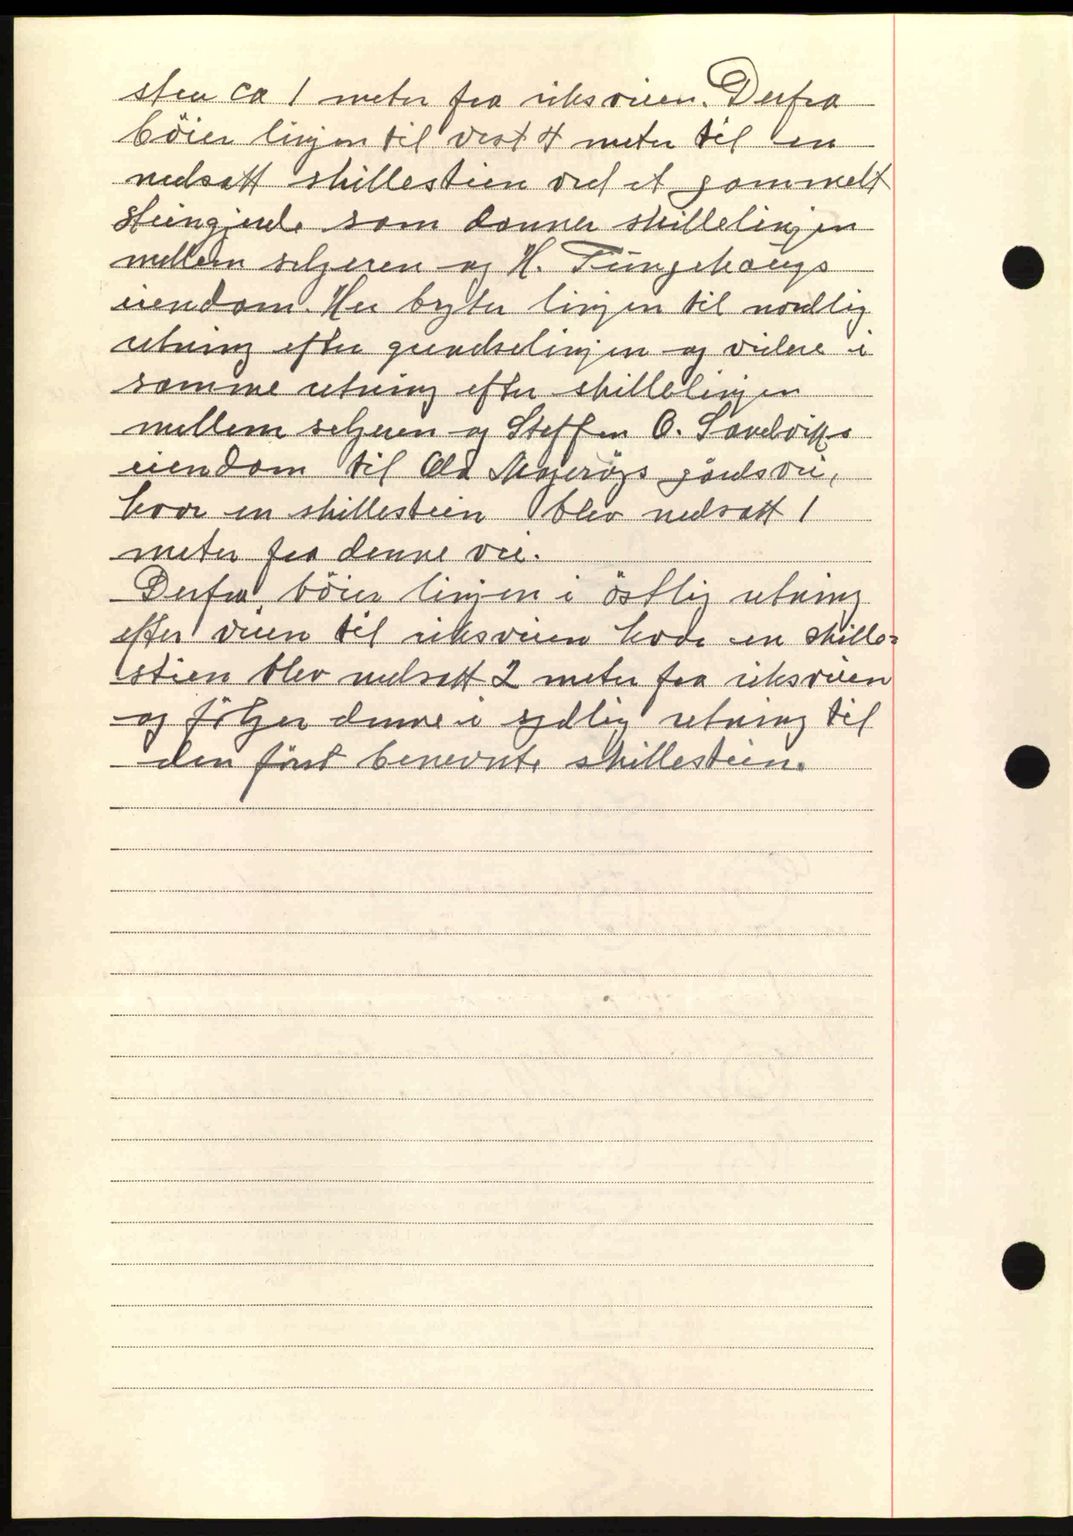 sten ca 1 meter fra riksveien. Derfra
böier linjen til vest 4 meter til en
nedsatt skillestien ved et gammelt
Steingjerde som danner skillelinjen
mellem selgeren og H. Tungehaugs
eiendom. Her bryter linjen til nordlig
retning efter grendselinjen og videre i
samme retning efter skillelinjen
mellem selgeren og Steffen O. Sandviks
eiendom til Ola Magerøys gårdsvei,
hvor en skillestein blev nedsatt 1
meter fra denne vei.
Derfra böier linjen i östlig retning
efter veien til riksveien hvor en skille=
stien blev nedsatt 2 meter fra riksveien
og fölger denne i sydlig retning til
den först benevnte skillestein.